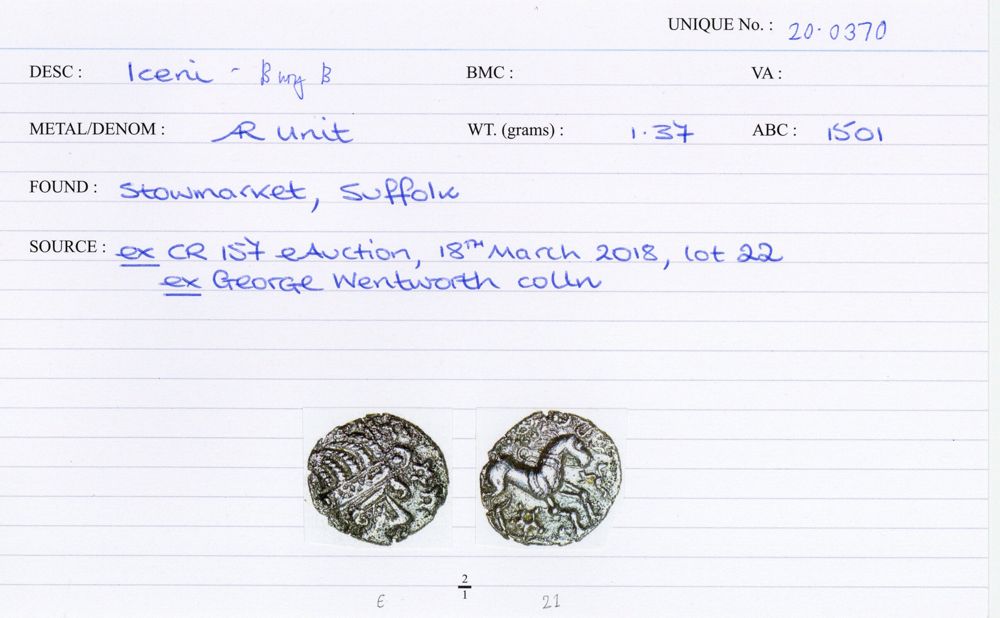 UNIQUE No. : 20·0370
DESC : Iceni - Bury B BMC : VA :
METAL/DENOM : AR unit WT. (grams) : 1·37 ABC : 1501
FOUND : Stowmarket, Suffolk
SOURCE : ex CR 157 eAuction, 18TH March 2018, lot 22
ex George Wentworth colln
2
1
E 21